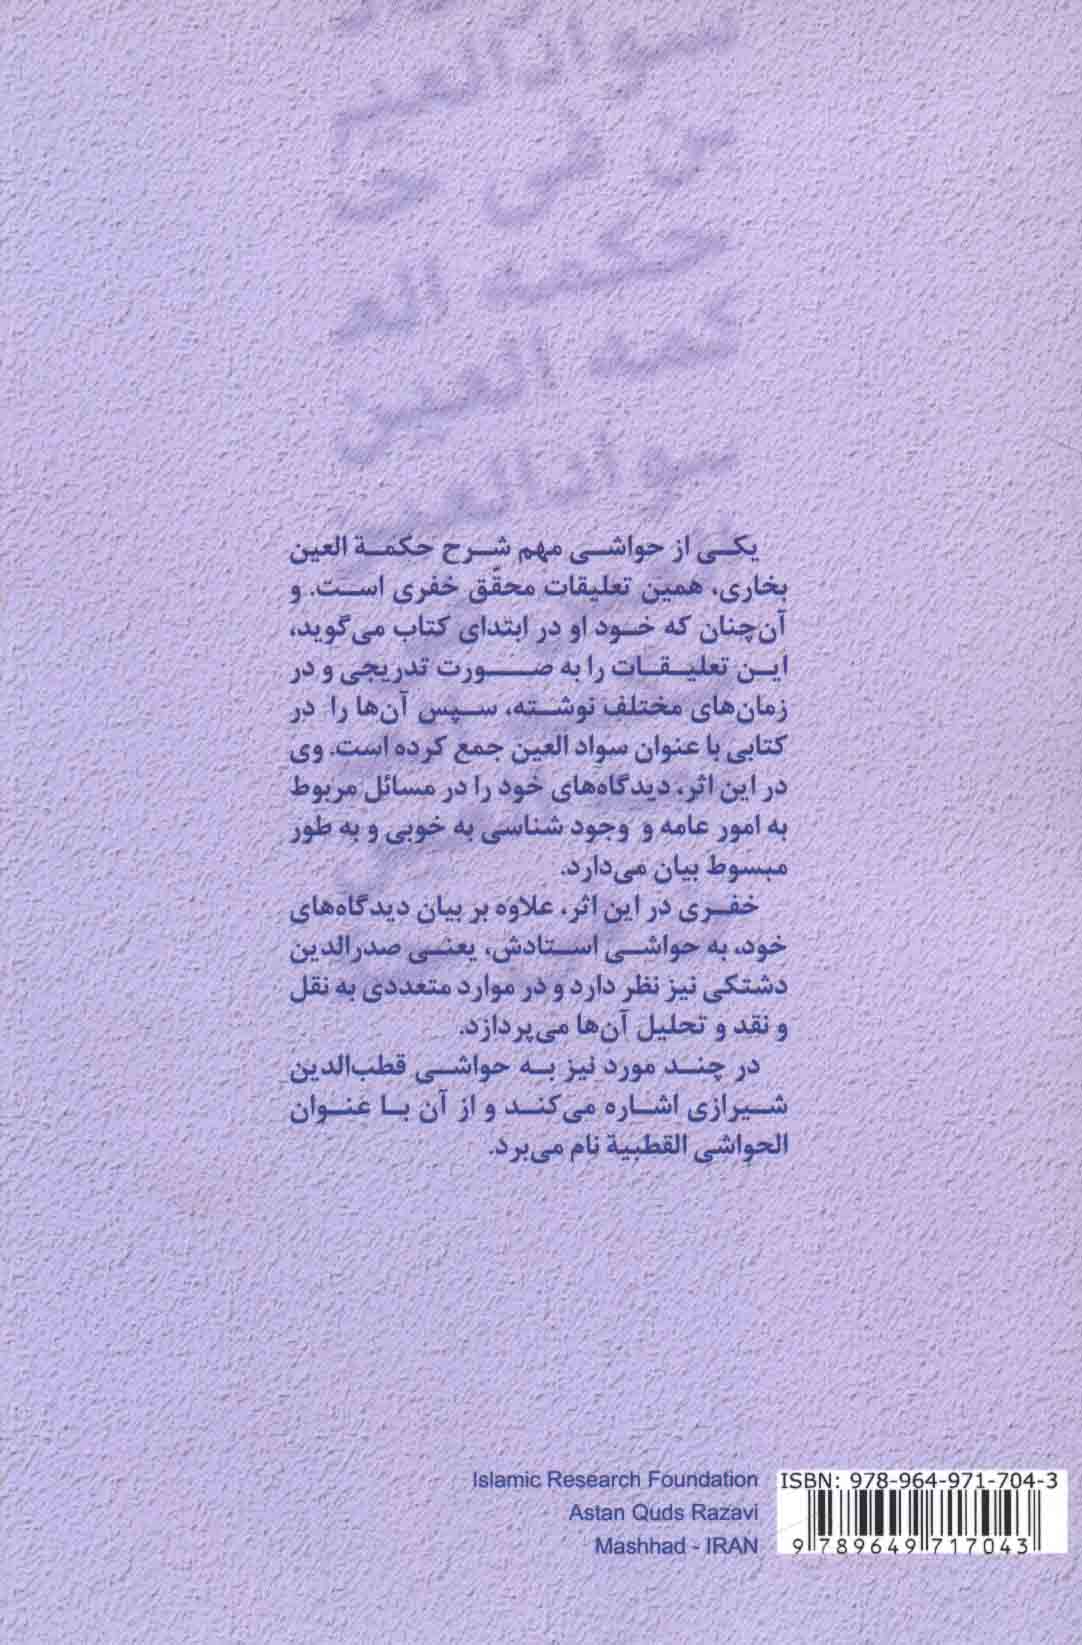 سواد العین
حکمه الع
کمه العین
سواد العین
یکی از حواشی مهم شرح حکمة العین
بخاری، همین تعلیقات محقّق خفری است. و
آن‌چنان که خود او در ابتدای کتاب می‌گوید،
این تعلیقات را به صورت تدریجی و در
زمان‌های مختلف نوشته، سپس آن‌ها را در
کتابی با عنوان سواد العین جمع کرده است. وی
در این اثر، دیدگاه‌های خود را در مسائل مربوط
به امور عامه و وجود شناسی به خوبی و به طور
مبسوط بیان می‌دارد.
خفری در این اثر، علاوه بر بیان دیدگاه‌های
خود، به حواشی استادش، یعنی صدرالدین
دشتکی نیز نظر دارد و در موارد متعددی به نقل
و نقد و تحلیل آن‌ها می‌پردازد.
در چند مورد نیز به حواشی قطب‌الدین
شیرازی اشاره می‌کند و از آن با عنوان
الحواشی القطبیة نام می‌برد.
Islamic Research Foundation
Astan Quds Razavi
Mashhad - IRAN
ISBN: 978-964-971-704-3
9 789649 717043